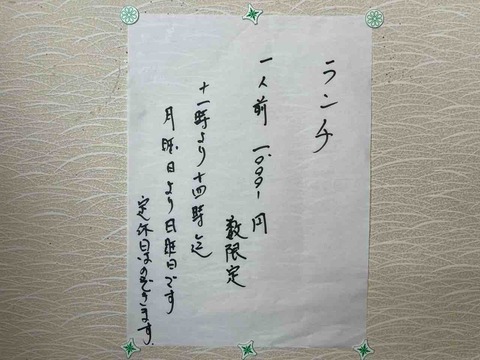 ランチ
一人前 一、〇〇〇円
数限定
十一時より十四時迄
月曜日より日曜日です
定休日はのぞきます